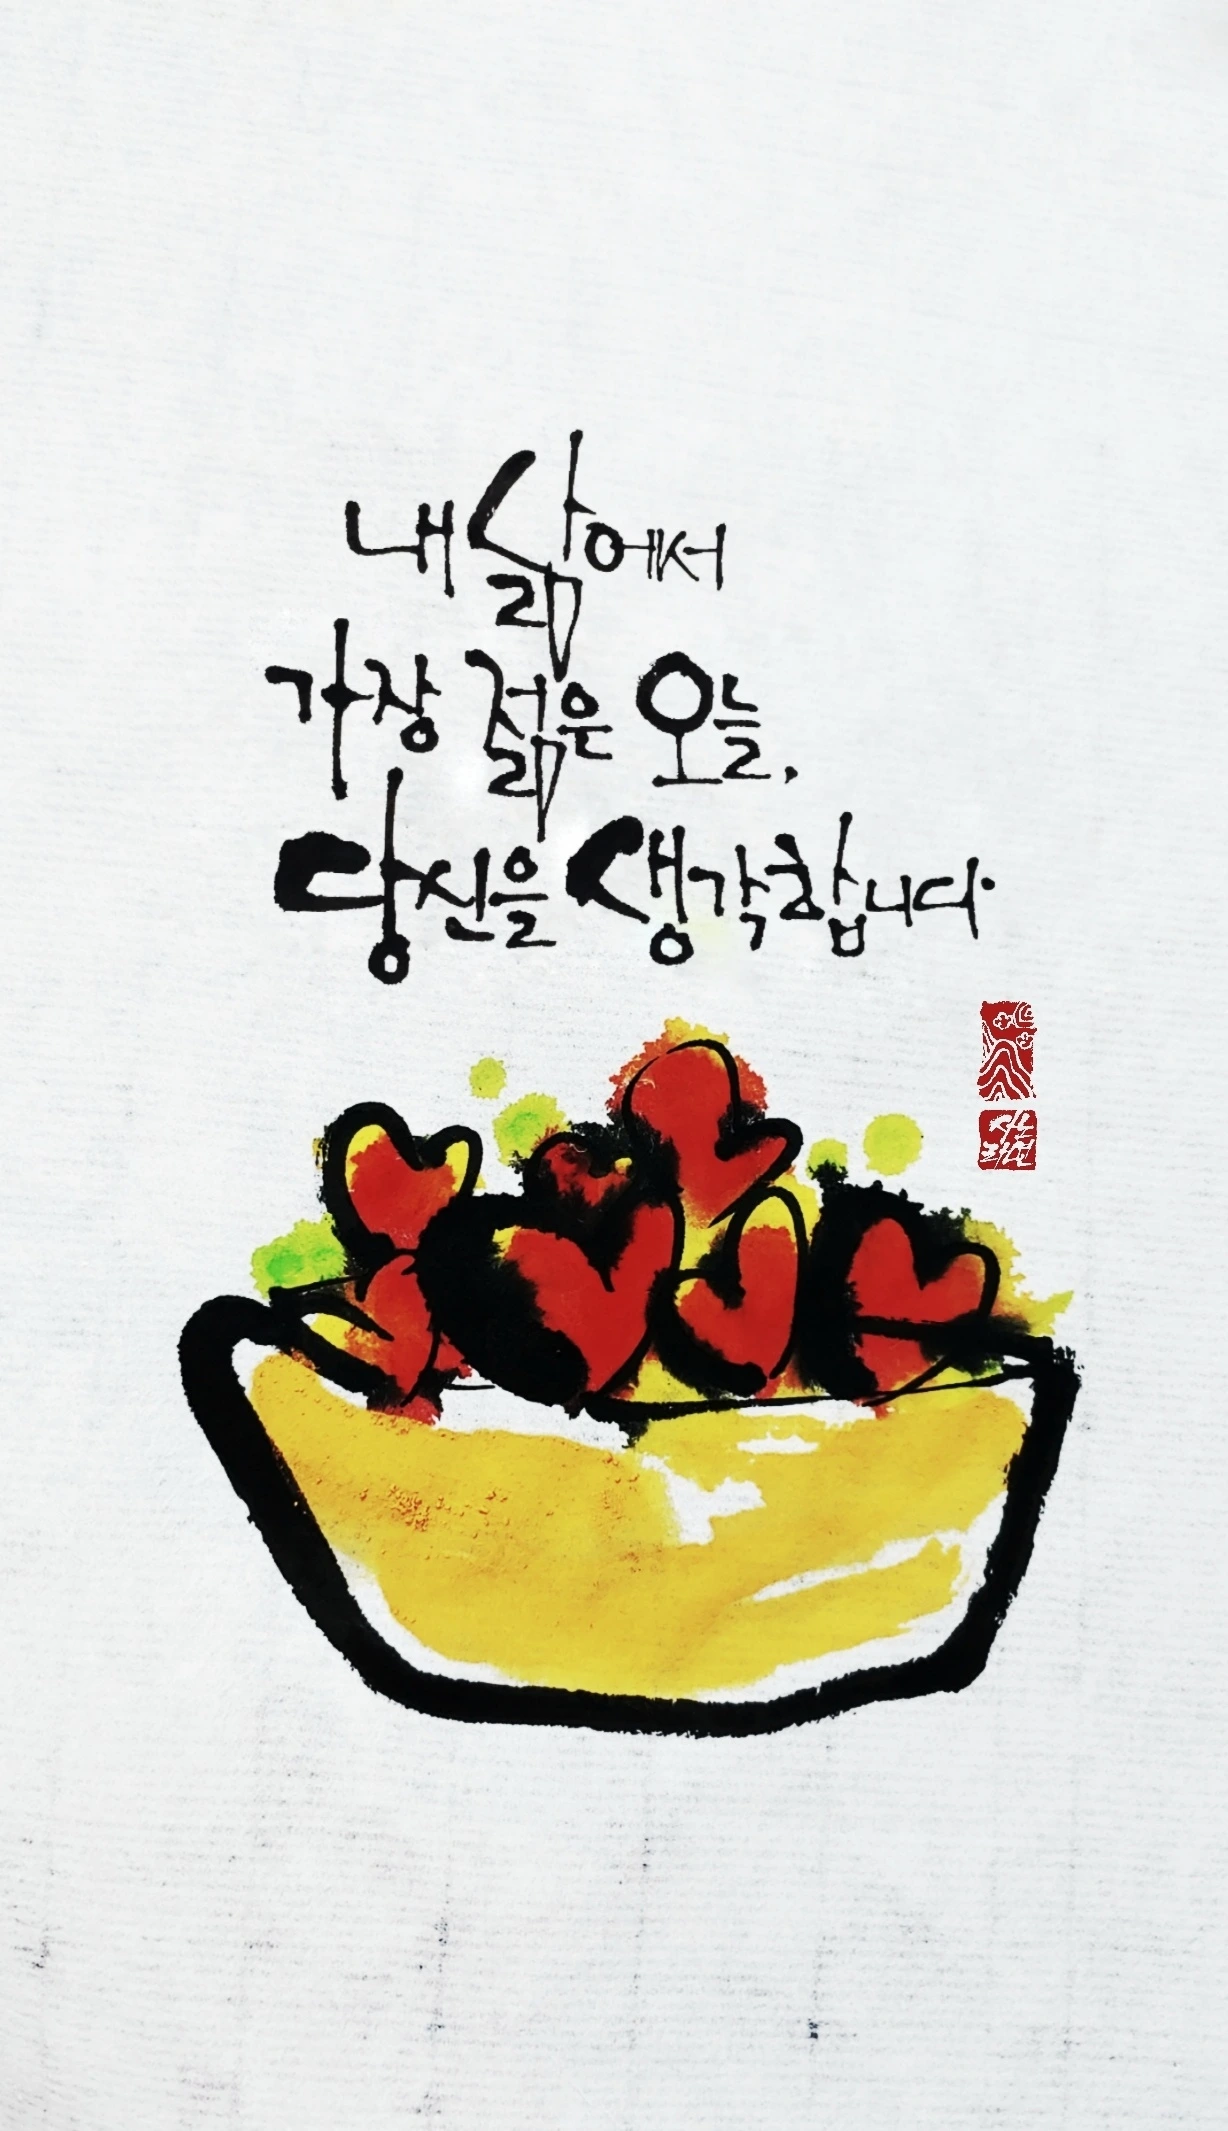 내 삶에서
가장 젊은 오늘,
당신을 생각합니다.